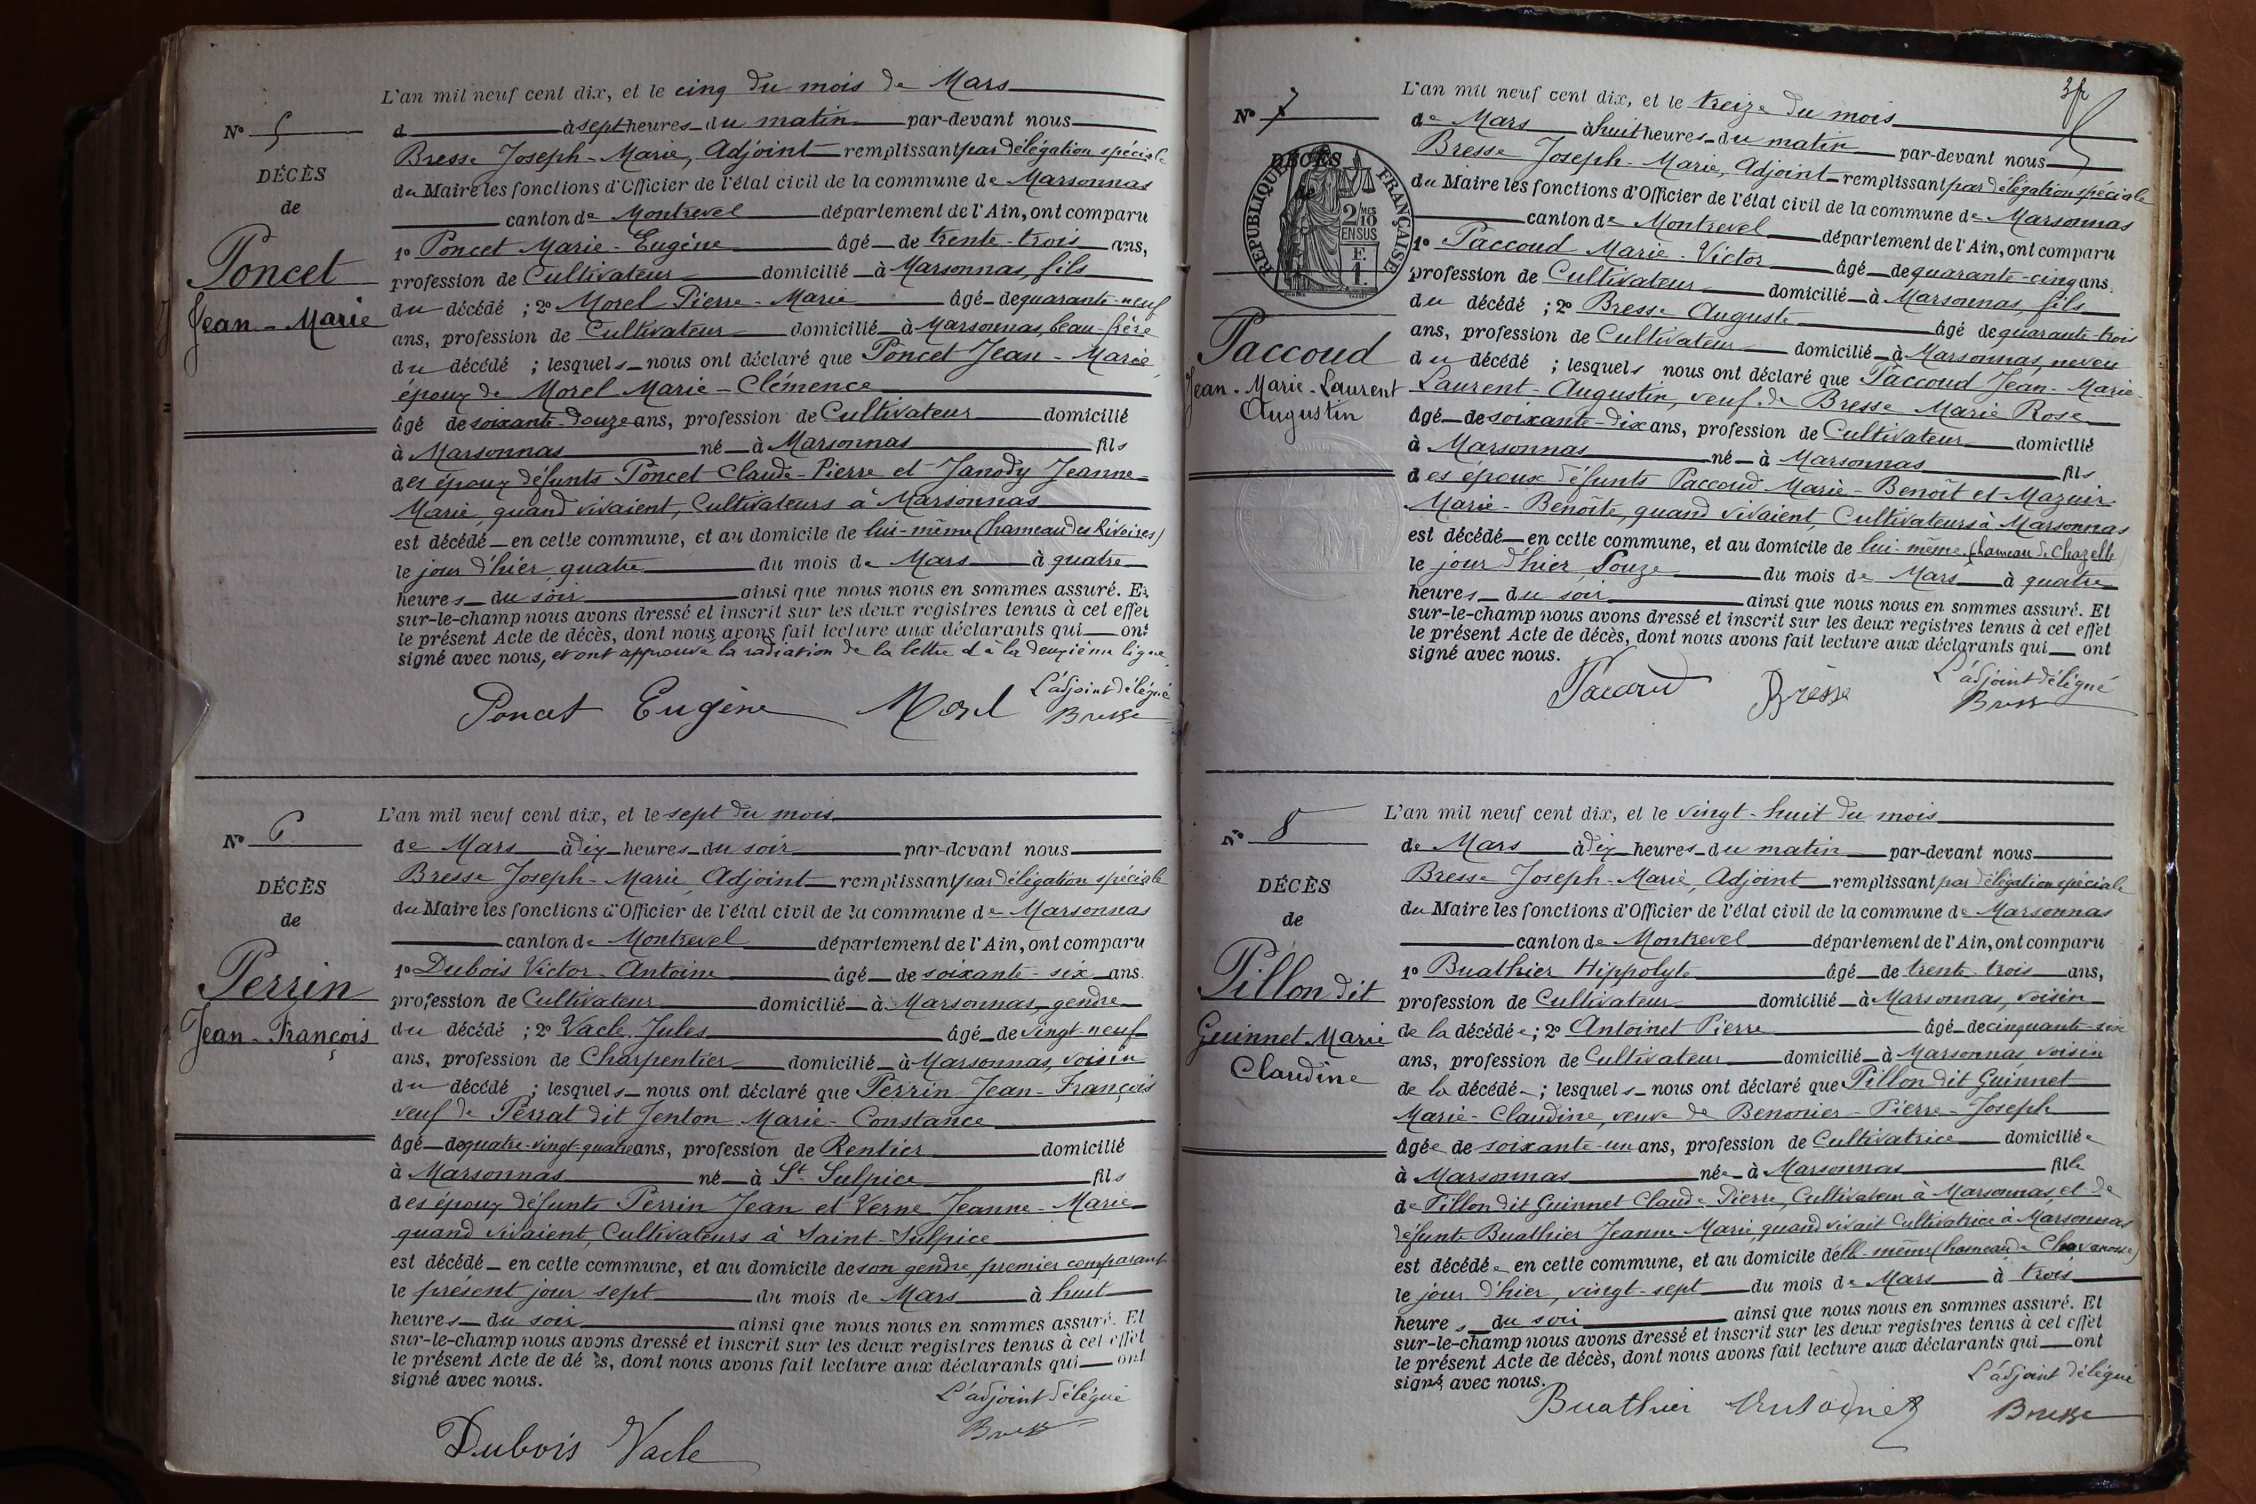 N° 5
DÉCÈS
de
Poncet
Jean-Marie
L'an mil neuf cent dix, et le cinq du mois de Mars
d à sept heures du matin par-devant nous
Bresse Joseph-Marie, Adjoint remplissant par délégation spéciale
du Maire les fonctions d'Officier de l'état civil de la commune de Marsonnas
canton de Montrevel département de l'Ain, ont comparu
1° Poncet Marie-Eugène âgé de trente-trois ans,
profession de Cultivateur domicilié à Marsonnas, fils
du décédé ; 2° Morel Pierre-Marie âgé de quarante-neuf
ans, profession de Cultivateur domicilié à Marsonnas, beau-frère
du décédé ; lesquels nous ont déclaré que Poncet Jean-Marie,
époux de Morel Marie-Clémence
âgé de soixante-douze ans, profession de Cultivateur domicilié
à Marsonnas né à Marsonnas fils
des époux défunts Poncet Claude-Pierre et Janody Jeanne-
Marie, quand vivaient, Cultivateurs à Marsonnas
est décédé en cette commune, et au domicile de lui-même (hameau des Rivoires)
le jour d'hier quatre du mois de Mars à quatre
heures du soir ainsi que nous nous en sommes assuré. Et
sur-le-champ nous avons dressé et inscrit sur les deux registres tenus à cet effet
le présent Acte de décès, dont nous avons fait lecture aux déclarants qui ont
signé avec nous, et ont approuvé la radiation de la lettre d à la deuxième ligne.
L'adjoint délégué
Poncet Eugène Morel Bresse
N° 6
DÉCÈS
de
Perrin
Jean-François
L'an mil neuf cent dix, et le sept du mois
de Mars à dix heures du soir par-devant nous
Bresse Joseph-Marie, Adjoint remplissant par délégation spéciale
du Maire les fonctions d'Officier de l'état civil de la commune de Marsonnas
canton de Montrevel département de l'Ain, ont comparu
1° Dubois Victor-Antoine âgé de soixante-six ans.
profession de Cultivateur domicilié à Marsonnas, gendre
du décédé ; 2° Vacle Jules âgé de vingt-neuf
ans, profession de Charpentier domicilié à Marsonnas, voisin
du décédé ; lesquels nous ont déclaré que Perrin Jean-François
veuf de Perrat dit Jenton Marie-Constance
âgé de quatre-vingt-quatre ans, profession de Rentier domicilié
à Marsonnas né à St Sulpice fils
des époux défunts Perrin Jean et Verne Jeanne-Marie
quand vivaient, Cultivateurs à Saint-Sulpice
est décédé en cette commune, et au domicile de son gendre premier comparant
le présent jour sept du mois de Mars à huit
heures du soir ainsi que nous nous en sommes assuré. Et
sur-le-champ nous avons dressé et inscrit sur les deux registres tenus à cet effet
le présent Acte de dé ès, dont nous avons fait lecture aux déclarants qui ont
signé avec nous.
L'adjoint délégué
Dubois Vacle Bresse
3f
N° 7
RÉPUBLIQUE FRANÇAISE
2/10MES
EN SUS
F.
1.
DÉCÈS
Paccoud
Jean-Marie-Laurent
Augustin
L'an mil neuf cent dix, et le treize du mois
de Mars à huit heures du matin par-devant nous
Bresse Joseph-Marie, Adjoint remplissant par délégation spéciale
du Maire les fonctions d'Officier de l'état civil de la commune de Marsonnas
canton de Montrevel département de l'Ain, ont comparu
1° Paccoud Marie-Victor âgé de quarante-cinq ans.
profession de Cultivateur domicilié à Marsonnas, fils
du décédé ; 2° Bresse Auguste âgé de quarante-trois
ans, profession de Cultivateur domicilié à Marsonnas, neveu
du décédé ; lesquels nous ont déclaré que Paccoud Jean-Marie-
Laurent-Augustin, veuf de Bresse Marie Rose
âgé de soixante-dix ans, profession de Cultivateur domicilié
à Marsonnas né à Marsonnas fils
des époux défunts Paccoud Marie-Benoît et Mazuir
Marie-Benoîte, quand vivaient, Cultivateurs à Marsonnas
est décédé en cette commune, et au domicile de lui-même (hameau de Chazelle)
le jour d'hier douze du mois de Mars à quatre
heures du soir ainsi que nous nous en sommes assuré. Et
sur-le-champ nous avons dressé et inscrit sur les deux registres tenus à cet effet
le présent Acte de décès, dont nous avons fait lecture aux déclarants qui ont
signé avec nous.
L'adjoint délégué
Paccoud Bresse Bresse
N° 8
DÉCÈS
de
Pillon dit
Guinnet Marie
Claudine
L'an mil neuf cent dix, et le vingt-huit du mois
de Mars à dix heures du matin par-devant nous
Bresse Joseph-Marie, Adjoint remplissant par délégation spéciale
du Maire les fonctions d'Officier de l'état civil de la commune de Marsonnas
canton de Montrevel département de l'Ain, ont comparu
1° Buathier Hippolyte âgé de trente-trois ans,
profession de Cultivateur domicilié à Marsonnas, voisin
de la décédée ; 2° Antoinet Pierre âgé de cinquante-six
ans, profession de Cultivateur domicilié à Marsonnas voisin
de la décédée ; lesquels nous ont déclaré que Pillon dit Guinnet
Marie-Claudine, veuve de Benonier-Pierre-Joseph
âgée de soixante-un ans, profession de Cultivatrice domiciliée
à Marsonnas née à Marsonnas fille
de Pillon dit Guinnet Claude-Pierre, Cultivateur à Marsonnas, et de
défunte Buathier Jeanne Marie, quand vivait Cultivatrice à Marsonnas
est décédée en cette commune, et au domicile d'elle-même (hameau de Chavanosse)
le jour d'hier, vingt-sept du mois de Mars à trois
heures du soir ainsi que nous nous en sommes assuré. Et
sur-le-champ nous avons dressé et inscrit sur les deux registres tenus à cet effet
le présent Acte de décès, dont nous avons fait lecture aux déclarants qui ont
signé avec nous.
L'adjoint délégué
Buathier Antoinet Bresse